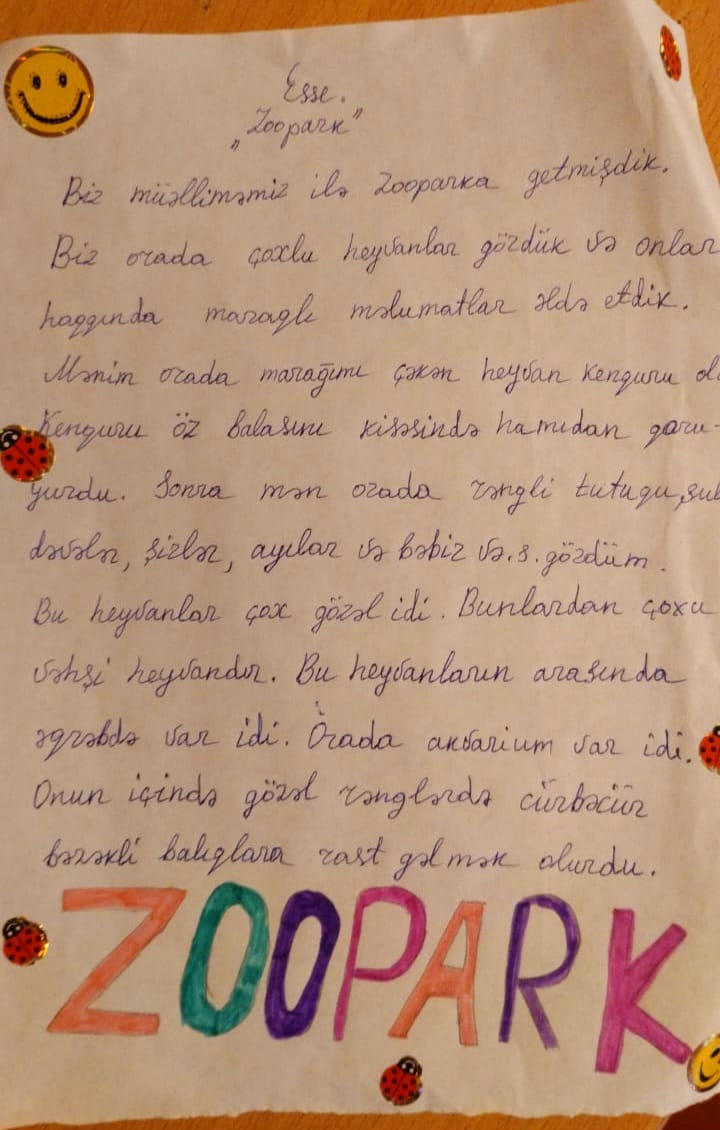 Esse.
„Zoopark”
Biz müəlliməmiz ilə Zooparka getmişdik.
Biz orada çoxlu heyvanlar gördük və onlar
haqqında maraqlı məlumatlar əldə etdik.
Mənim orada marağımı çəkən heyvan Kenguru ol
Kenguru öz balasını kisəsində hamıdan qoru-
yurdu. Sonra mən orada rəngli tutuquşu
dəvələr, şirlər, ayılar və bəbir və.s. gördüm.
Bu heyvanlar çox gözəl idi. Bunlardan çoxu
vəhşi heyvandır. Bu heyvanların arasında
əqrəbdə var idi. Orada akvarium var idi.
Onun içində gözəl rənglərdə cürbəcür
bəzəkli balıqlara rast gəlmək olurdu.
ZOOPARK